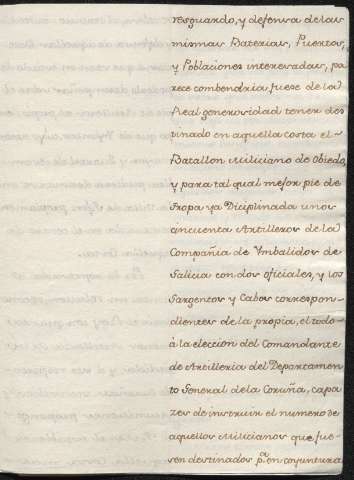 resguardo, y defensa de las
mismas Baterias, Puertos,
y Poblaciones interesadas, pa
rece combendria fuese de la
Real generosidad tener des
tinado en aquella costa el
Batallon Miliciano de Obiedo,
y para tal qual mejor pie de
Tropa ya Diciplinada unos
cincuenta Artilleros de la
Compañia de Ymbalidos de
Galicia con dos oficiales, y los
Sargentos y Cabos correspon-
dientes de la propia, el todo
á la eleccion del Comandante
de Artilleria del Departamen
to General de la Coruña, capa
zes de instruir el numero de
aquellos Milicianos que fue-
sen destinados pª en conjuntura